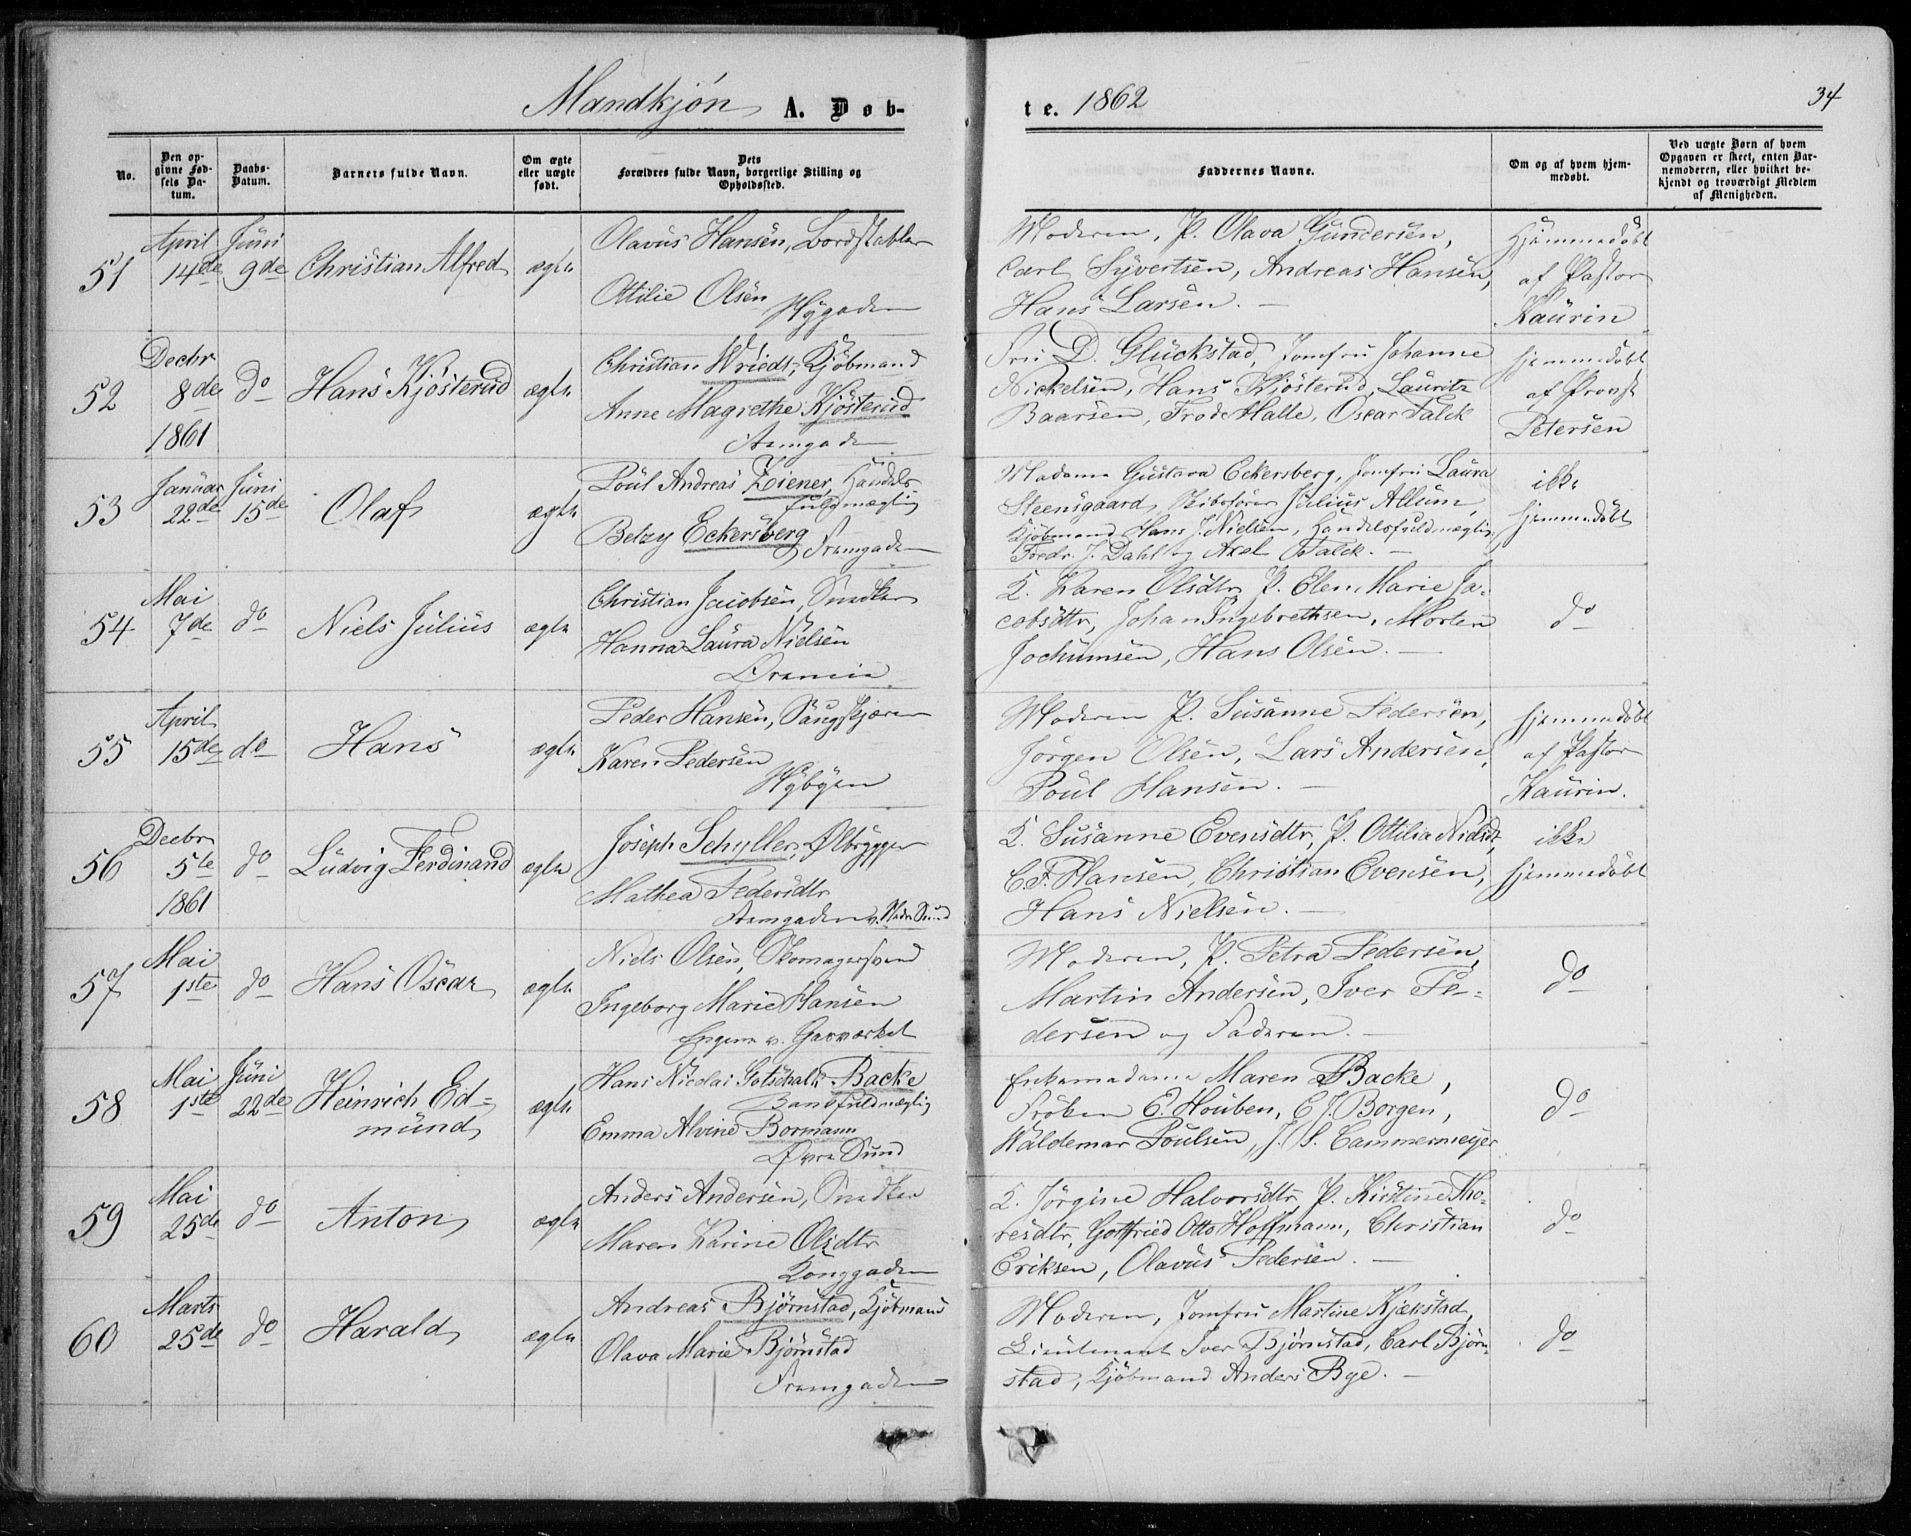 Mandkjøn A. Døb-
te. 1862
34
No.
Den opgivne Fødsels Datum.
Daabs-Datum.
Barnets fulde Navn.
Om ægte eller uægte født.
Dets Forældres fulde Navn, borgerlige Stilling og Opholdssted.
Faddernes Navne.
Om og af hvem hjemmedøbt.
Ved uægte Børn af hvem Opgaven er skeet, enten Barnemoderen, eller hvilket bekjendt og troværdigt Medlem af Menigheden.
51
April 14de
Juni 9de
Christian Alfred
ægte
Olavus Hansen, Bordstabler
Ottilie Olsen
Nygaden
Moderen, P. Olava Gundersen,
Carl Syvertsen, Andreas Hansen,
Hans Larsen. —
Hjemmedøbt
af Pastor
Kaurin
52
Decbr
8de
1861
do
Hans Kjösterud
ægte
Christian Wriedt, Kjøbmand
Anne Magrethe Kjösterud
Fru D. Glückstad, Jomfru Johanne
Nickelsen, Hans Kjösterud, Lauritz
Baarsen, Frode Halle, Oscar Falck
hjemmedöbt
af Provst
Petersen
53
Januar 22de
Juni 15de
Olaf
ægte
Poul Andreas Ziener, Handels
fuldmægtig
Betzy Eckersberg
Fremgaden
Madame Gustava Eckersberg, Jomfru Laura
Steensgaard, Skibsfører Julius Allum,
Kjøbmand Hans J. Nielsen, Handelsfuldmægtig
Fredr. J. Dahl og Axel Falck. —
ikke
hjemmedøbt
54
Mai
7de
do
Niels Julius
ægte
Christian Jacobsen, Snedker
Hanna Laura Nielsen
K. Karen Olsdtr, P. Elen Marie Ja-
cobsdtr, Johan Ingebrethsen, Morten
Jochumsen, Hans Olsen. —
do
55
April
15de
do
Hans
ægte
Peder Hansen, Saugskjærer
Karen Pedersen
Nybyen
Moderen P. Susanne Pedersen,
Jørgen Olsen, Lars Andersen,
Poul Hansen. —
hjemmedøbt
af Pastor
Kaurin.
56
Decbr
5te
1861
do
Ludvig Ferdinand
ægte
Joseph Schyller, Ølbrygger
Mathea Pedersdtr
K. Susanne Evensdtr, P. Ottilia Nielsdtr,
C. F. Hansen, Christian Evensen,
Hans Nielsen. —
ikke
hjemmedøbt
57
Mai
1ste
do
Hans Oscar
ægte
Niels Olsen, Skomagersvend
Ingeborg Marie Hansen
Engene v. Gasværket
Moderen, P. Petra Pedersen,
Martin Andersen, Iver Pe-
dersen og Faderen. —
do
58
Mai
1ste
Juni
22de
Heinrich Ed-
mund
ægte
Hans Nicolai Gotschalk Backe
Bankfuldmægtig
Emma Alvine Bormann
Øvre Sund
Enkemadame Maren Backe,
Frøken E. Houben, C J. Borgen,
Waldemar Poulsen, J. S. Cammermeyer
do
59
Mai
25de
do
Anton
ægte
Anders Andersen, Snedker
Maren Karine Olsdtr
Konggaden
K. Jørgine Halvorsdtr, P. Kirstine Tho-
resdtr, Gotfried Otto Hoffmann, Christian
Eriksen, Olavus Pedersen. —
do
60
Marts
25de
do
Harald
ægte
Andreas Bjørnstad, Kjøbmand
Olava Marie Bjørnstad
Fremgaden
Moderen, Jomfru Martine Kjækstad,
Lieutenant Iver Bjørnstad, Carl Bjørn-
stad, Kjøbmand Anders Bye. —
do